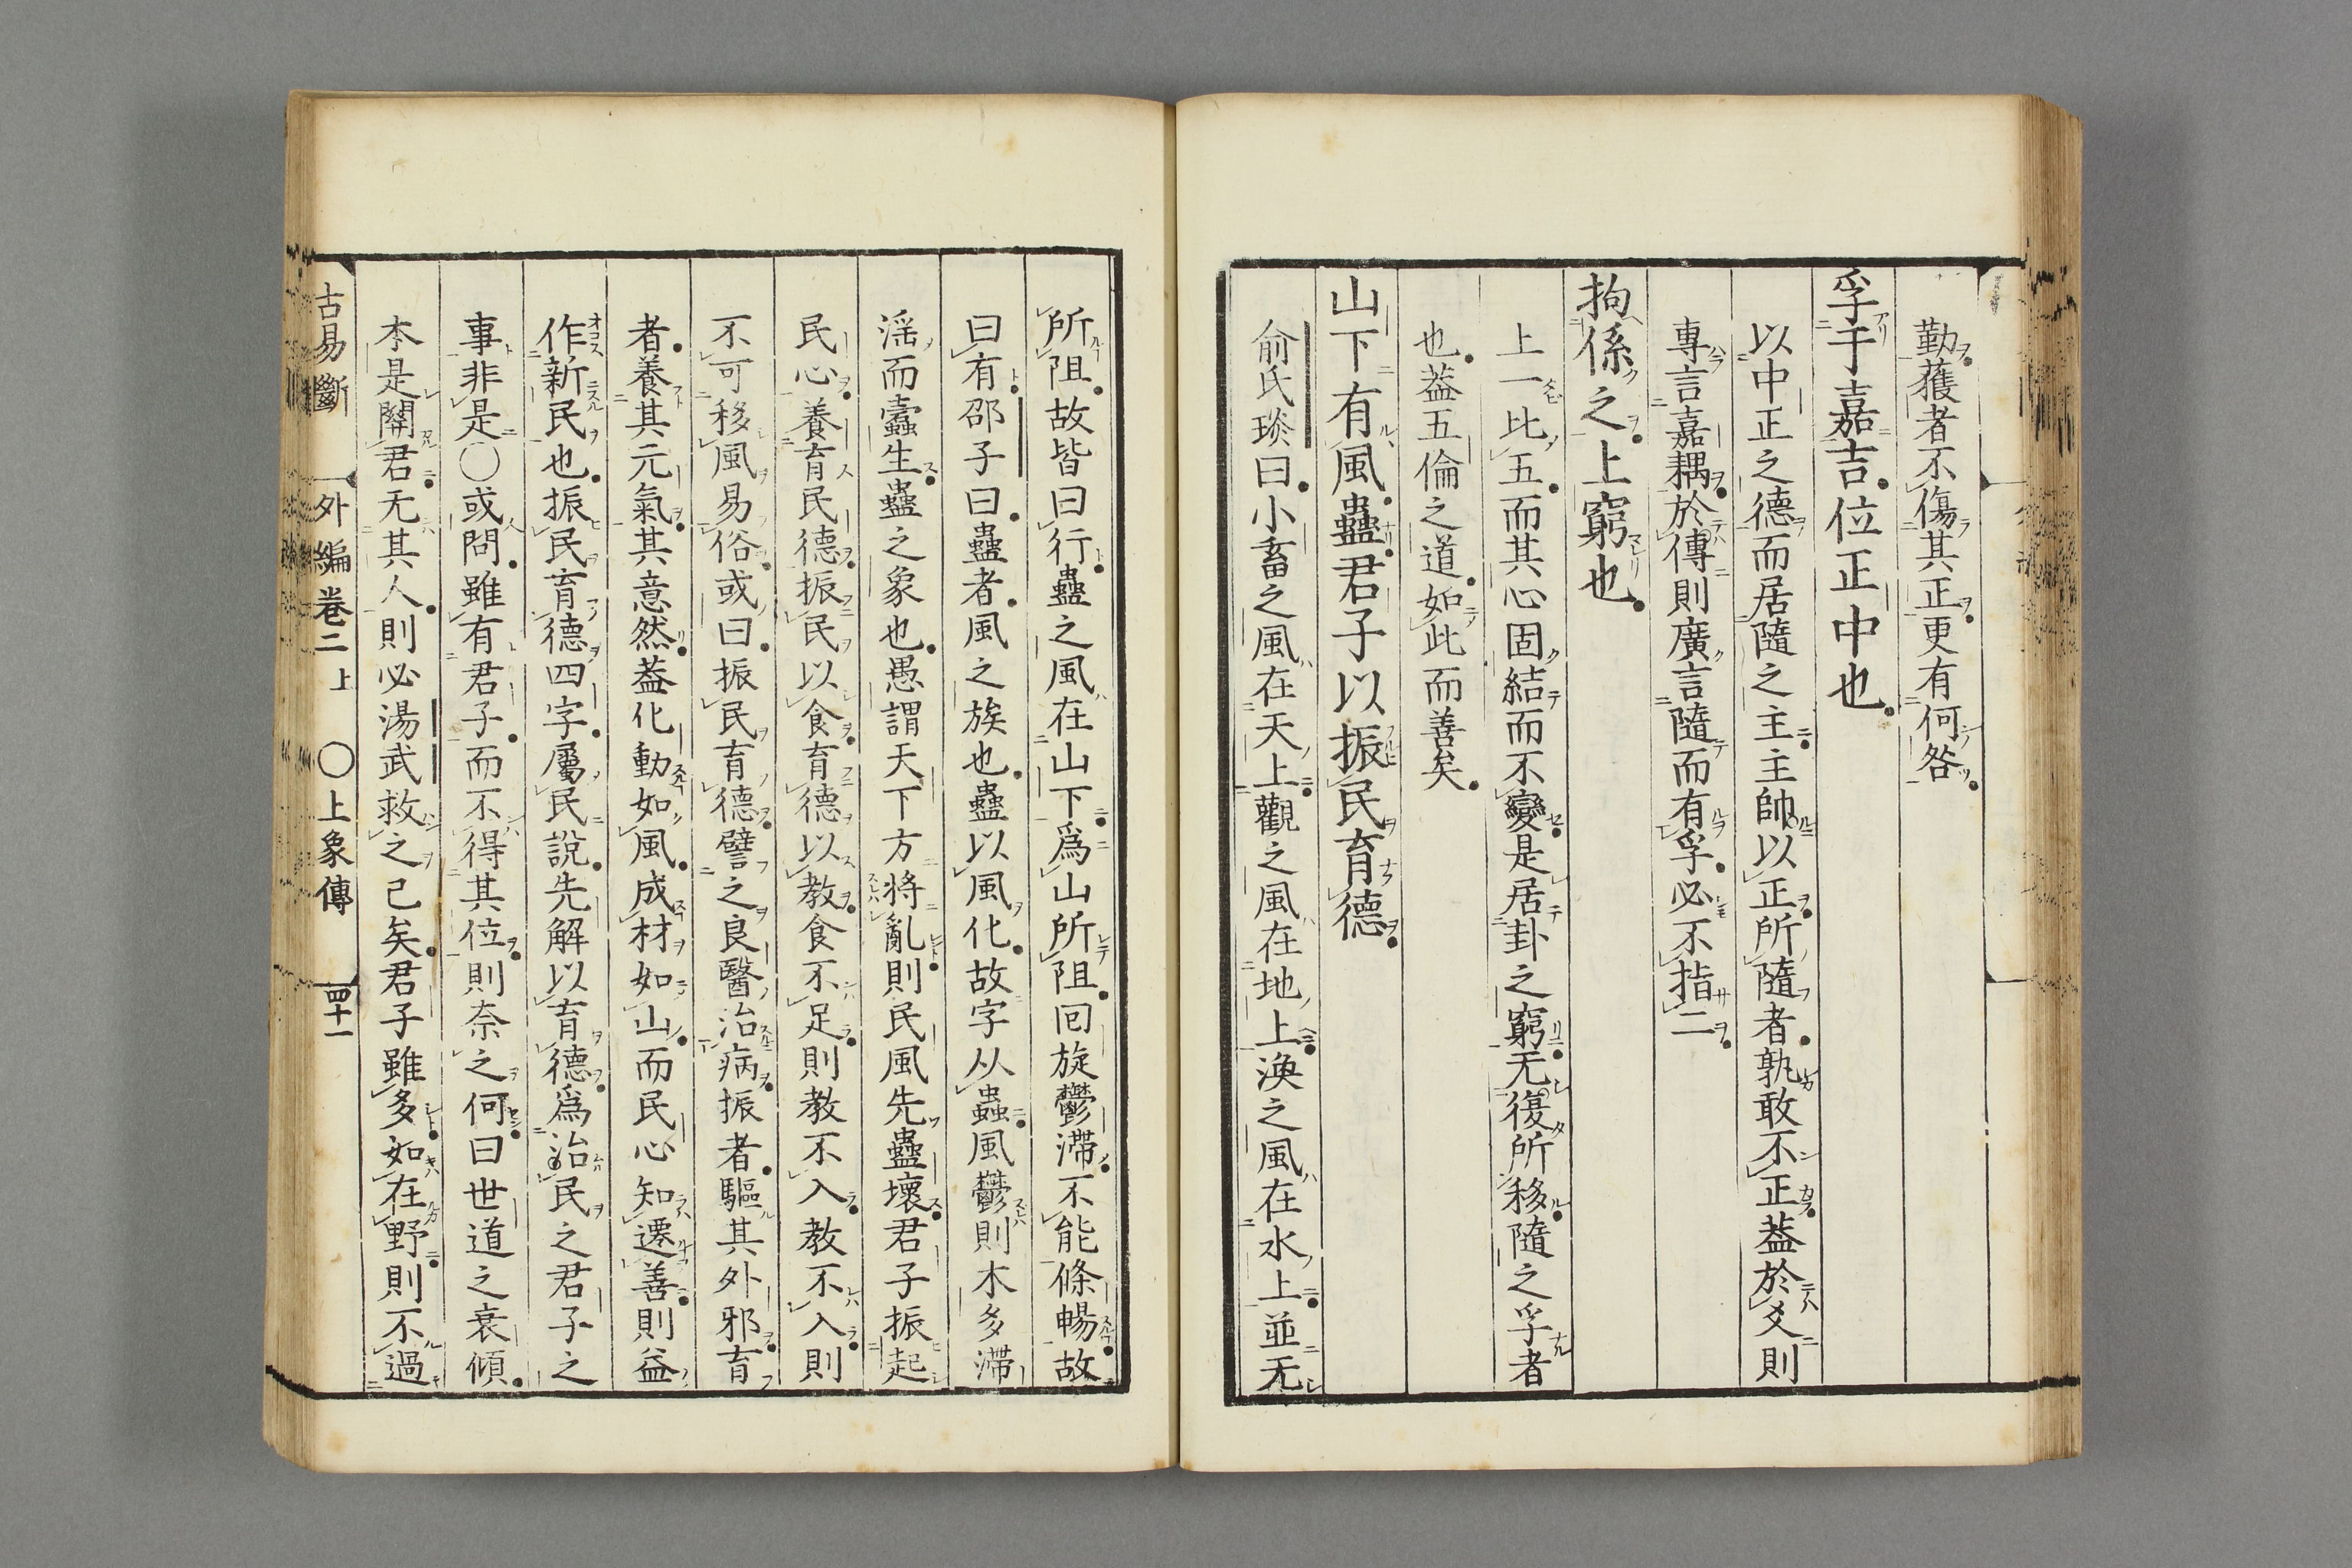 勤獲者不傷其正更有何咎
孚于嘉吉位正中也
以中正之德而居隨之主主帥以正所隨者孰敢不正葢於爻則
專言嘉耦於傳則廣言隨而有孚必不指二
拘係之上窮也
上一比五而其心固結而不變是居卦之窮无復所移隨之孚者
也葢五倫之道如此而善矣
山下有風蠱君子以振民育德
俞氏琰曰小畜之風在天上觀之風在地上渙之風在水上並无
所阻故皆曰行蠱之風在山下爲山所阻回旋鬱滯不能條暢故
曰有邵子曰蠱者風之族也蠱以風化故字从蟲風鬱則木多滯
淫而蠹生蠱之象也愚謂天下方將亂則民風先蠱壞君子振起
民心養育民德振民以食育德以教食不足則教不入教不入則
不可移風易俗或曰振民育德譬之良醫治病振者驅其外邪育
者養其元氣其意然葢化動如風成材如山而民心知遷善則益
作新民也振民育德四字屬民說先解以育德爲治民之君子之
事非是〇或問雖有君子而不得其位則奈之何曰世道之衰傾
本是關君无其人則必湯武救之已矣君子雖多如在野則不過
古易斷 外編卷二上 〇上象傳 四十一